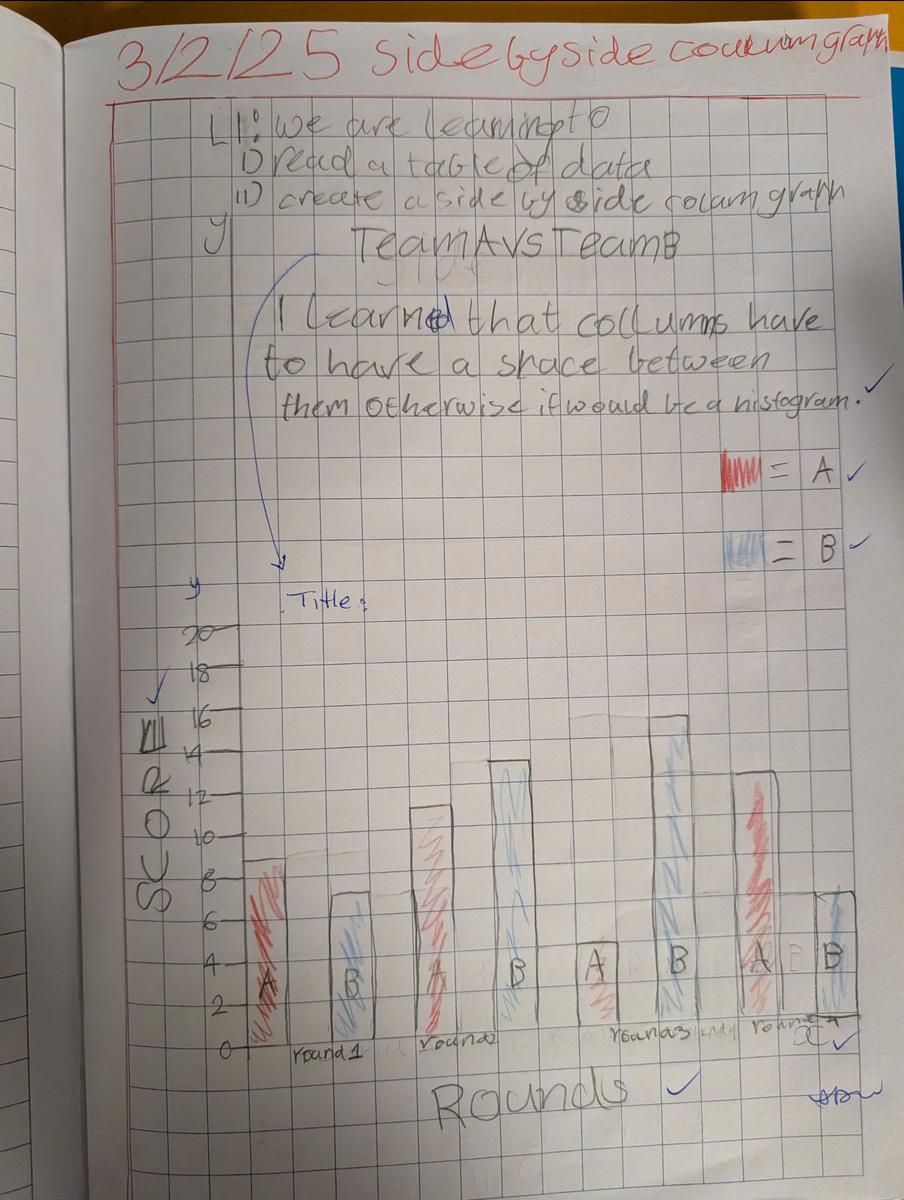 3/2/25 side by side collumn graph
LI: we are learning to
i) read a table of data
ii) create a side by side colum graph
y
Team A vs Team B
I learned that collumns have
to have a space between
them otherwise it would be a histogram.
= A
= B
y
Title:
20
18
16
14
12
10
8
6
4
2
0
SCORE
A
B
A
B
A
B
A
B
round1
round2
round3
round4
x
Rounds